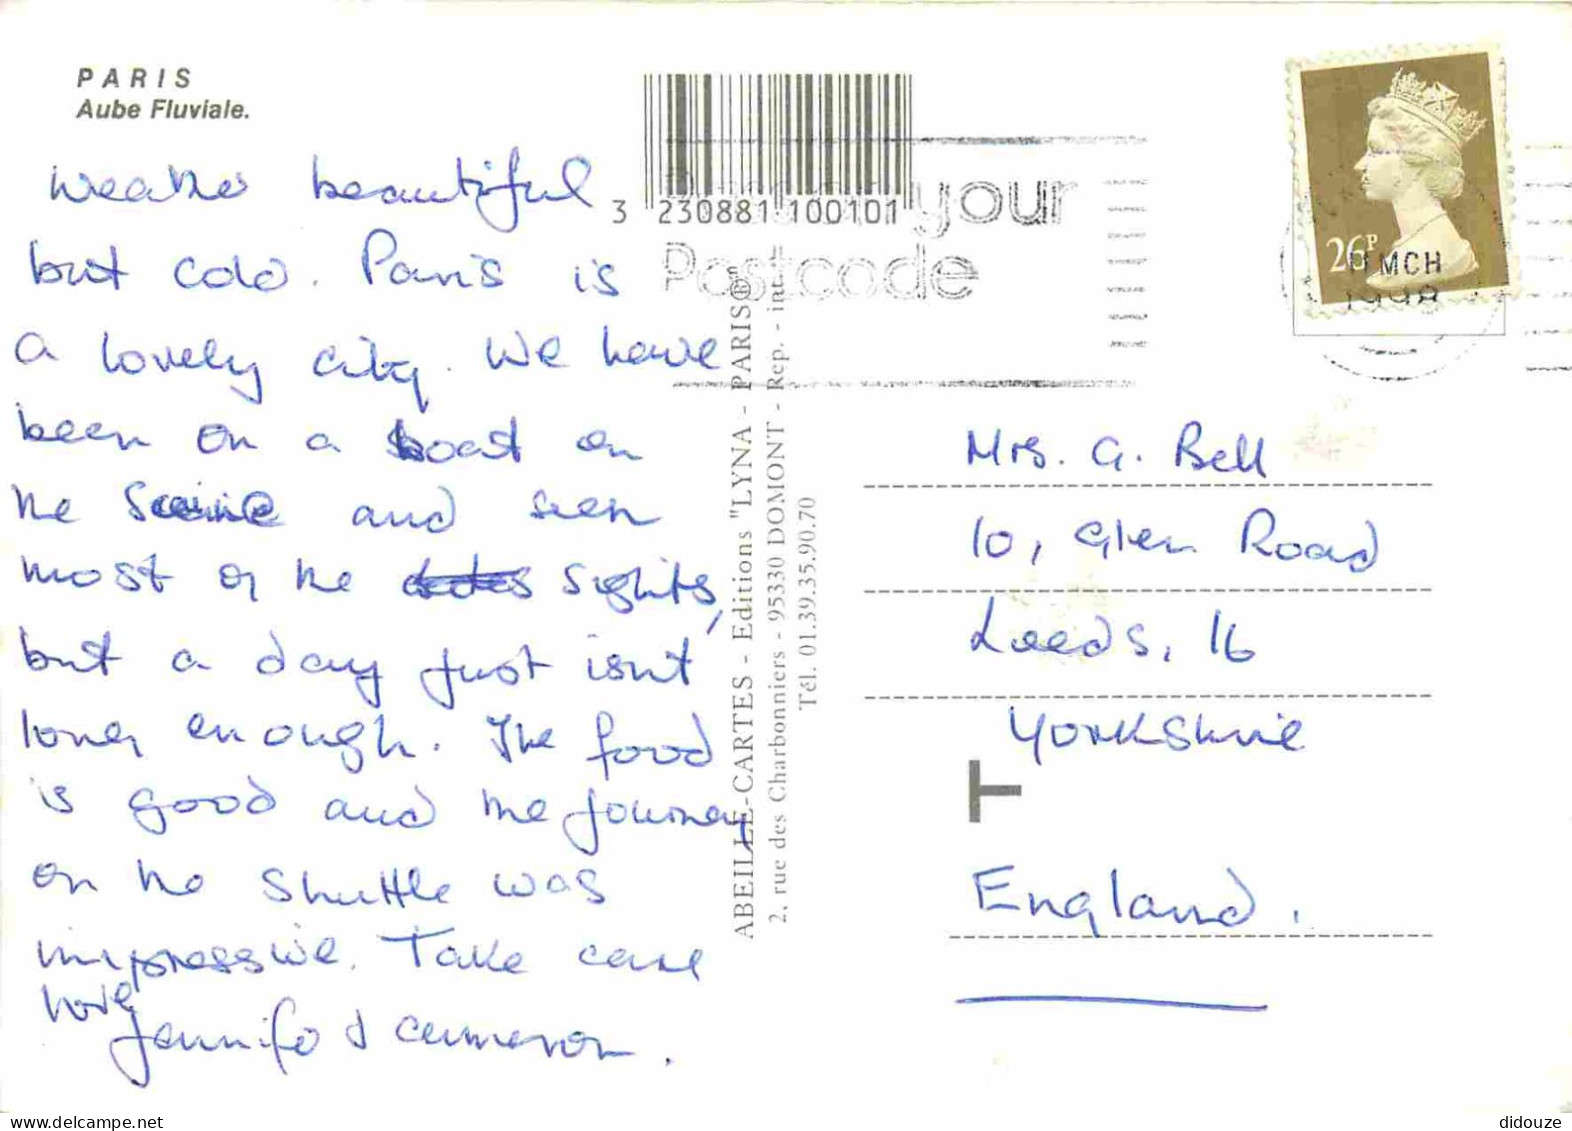 PARIS
Aube Fluviale.
Weather beautiful
but cold. Paris is
a lovely city. We have
been on a boat on
the Seine and seen
most of the sights,
but a day just isn't
long enough. The food
is good and the journey
on the shuttle was
impressive. Take care
love
Jennifer & Cameron.
3 230881 100101
your
Postcode
ABEILLE-CARTES - Editions "LYNA - PARIS
2, rue des Charbonniers - 95330 DOMONT - Rep. - int.
Tél. 01.39.35.90.70
26P
MCH
1998
Mrs. G. Bell
10, Glen Road
Leeds, 16
Yorkshire
T
England.
didouze